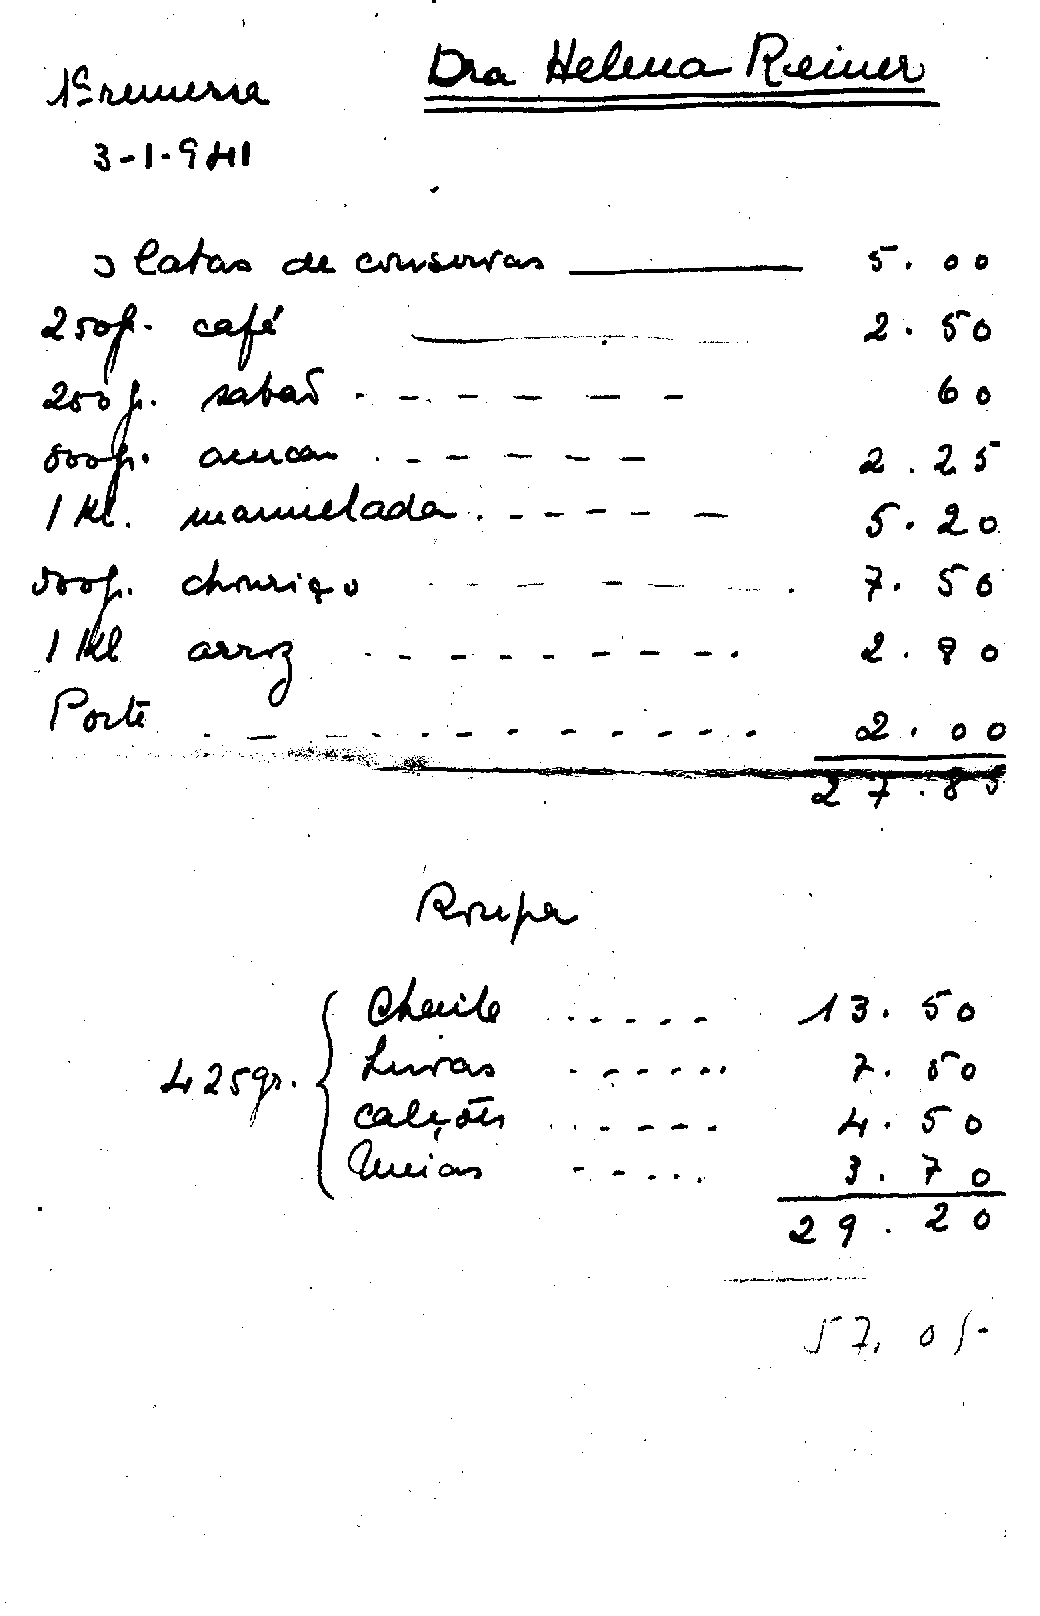 Dra Helena Reiner
1ª remessa
3-1-941
3 latas de conservas 5.00
250gr. café 2.50
200gr. sabaõ 60
500gr. assucar 2.25
1 Kl. marmelada 5.20
500gr. chouriço 7.50
1 Kl arroz 2.80
Porte 2.00
27.85
Roupa
Chaile 13.50
425gr. Luvas 7.50
calções 4.50
Meias 3.70
29.20
57.05